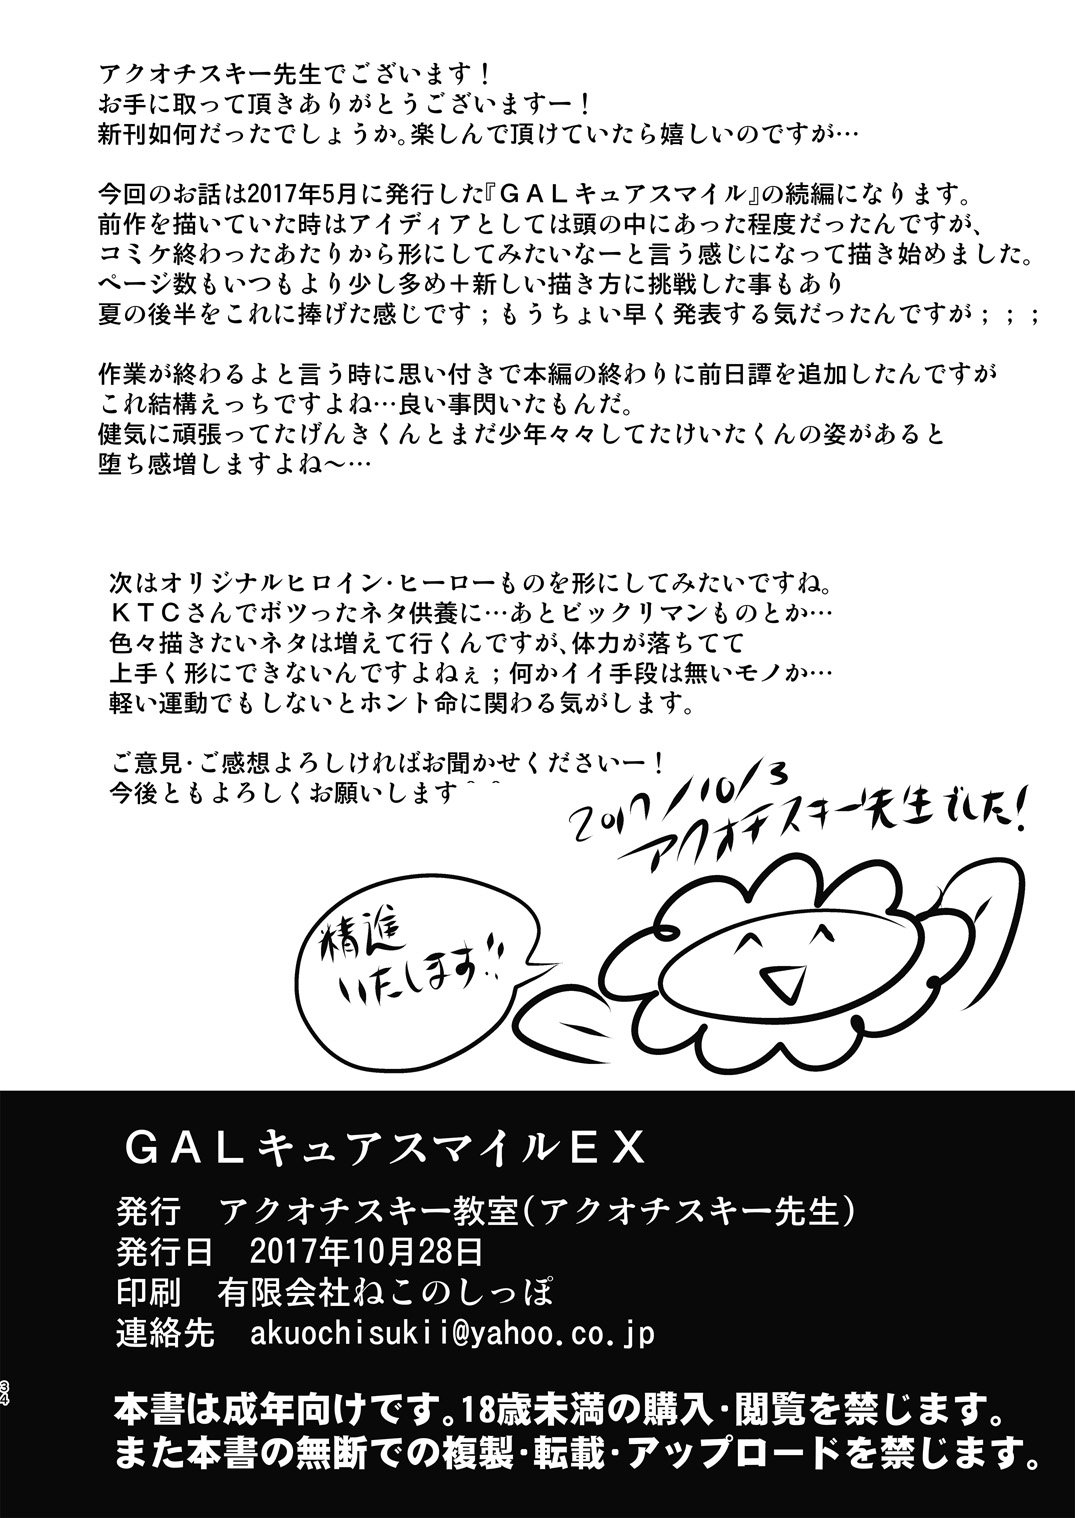 アクオチスキー先生でございます！
お手に取って頂きありがとうございますー！
新刊如何だったでしょうか。楽しんで頂けていたら嬉しいのですが…
今回のお話は2017年5月に発行した『ＧＡＬキュアスマイル』の続編になります。
前作を描いていた時はアイディアとしては頭の中にあった程度だったんですが、
コミケ終わったあたりから形にしてみたいなーと言う感じになって描き始めました。
ページ数もいつもより少し多め＋新しい描き方に挑戦した事もあり
夏の後半をこれに捧げた感じです；もうちょい早く発表する気だったんですが；；；
作業が終わるよと言う時に思い付きで本編の終わりに前日譚を追加したんですが
これ結構えっちですよね…良い事閃いたもんだ。
健気に頑張ってたげんきくんとまだ少年々々してたけいたくんの姿があると
堕ち感増しますよね～…
次はオリジナルヒロイン・ヒーローものを形にしてみたいですね。
ＫＴＣさんでボツったネタ供養に…あとビックリマンものとか…
色々描きたいネタは増えて行くんですが、体力が落ちてて
上手く形にできないんですよねぇ；何かイイ手段は無いモノか…
軽い運動でもしないとホント命に関わる気がします。
ご意見・ご感想よろしければお聞かせくださいー！
今後ともよろしくお願いします＾＾
2017/10/3
アクオチスキー先生でした！
精進
いたします!!
ＧＡＬキュアスマイルＥＸ
発行　アクオチスキー教室(アクオチスキー先生)
発行日　2017年10月28日
印刷　有限会社ねこのしっぽ
連絡先　akuochisukii@yahoo.co.jp
34
本書は成年向けです。18歳未満の購入・閲覧を禁じます。
また本書の無断での複製・転載・アップロードを禁じます。